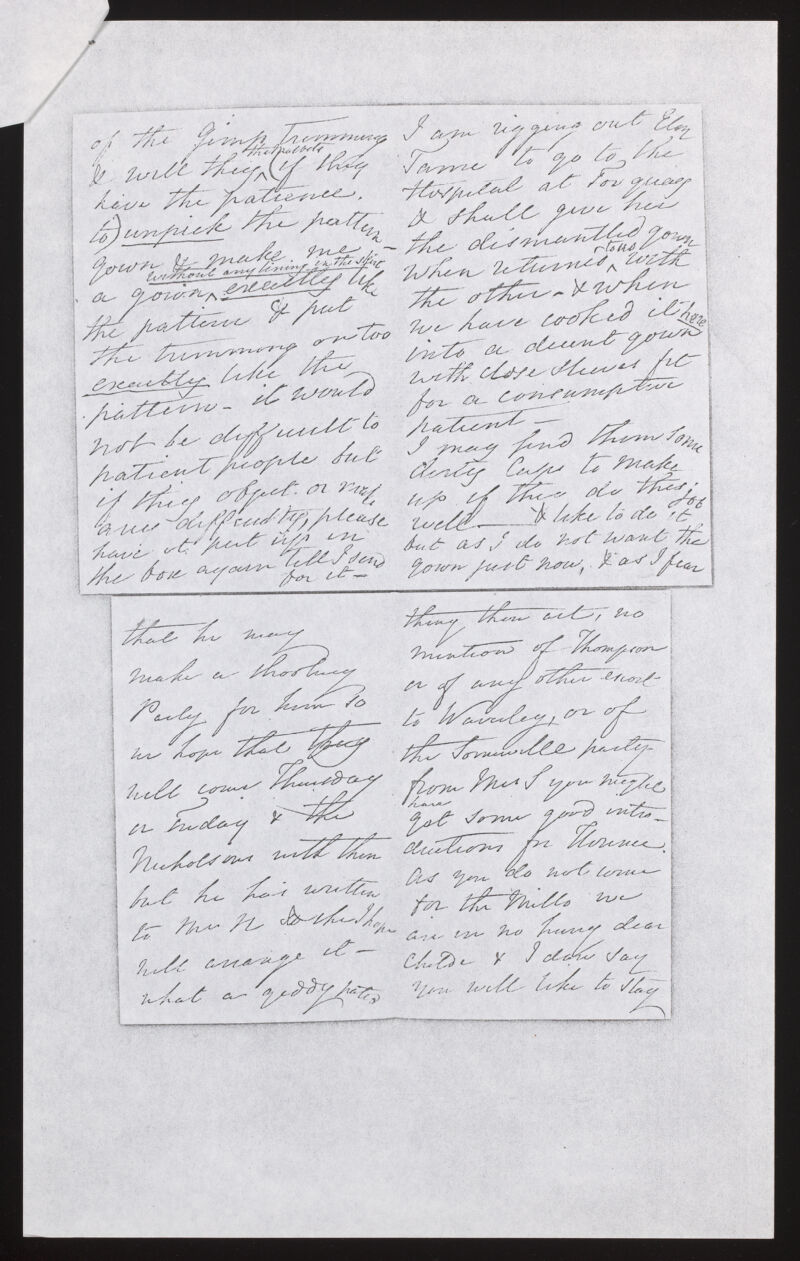 of the Gimp trimming
& will they (if they
have the patience
to) unpick the pattern
gown & make me
without any lining in the skirt
a gown exactly like
the pattern & put
the trimming on too
exactly like the
pattern - it would
not be difficult to
patient people but
if they object or make
any difficulty, please
have it put up in
the box again till I send
for it -
I am rigging out Eliz
Tame to go to the
Hospital at Torquay
& shall give her
the dismantled gown
when returned to us with
the other - & when
we have cooked it here
into a decent gown
with close sleeves fit
for a consumptive
patient -
I may find them some
dirty caps to make
up if they do this job
well - & like to do it
but as I do not want the
gown just now, & as I fear
that he may
make a shooting
Party for him so
we hope that they
will come Thursday
or Friday & the
Nicholsons with them
but he has written
to Mrs N & she I hope
will arrange it -
what a giddy
thing thou art, no
mention of Thompson
or of any other escort
to Waverley, or of
the Somerville party
from Mrs S you might
have
got some good intro-
ductions for Florence.
As you do not come
for the Mills we
are in no hurry dear
Childe & I dare say
you will like to stay